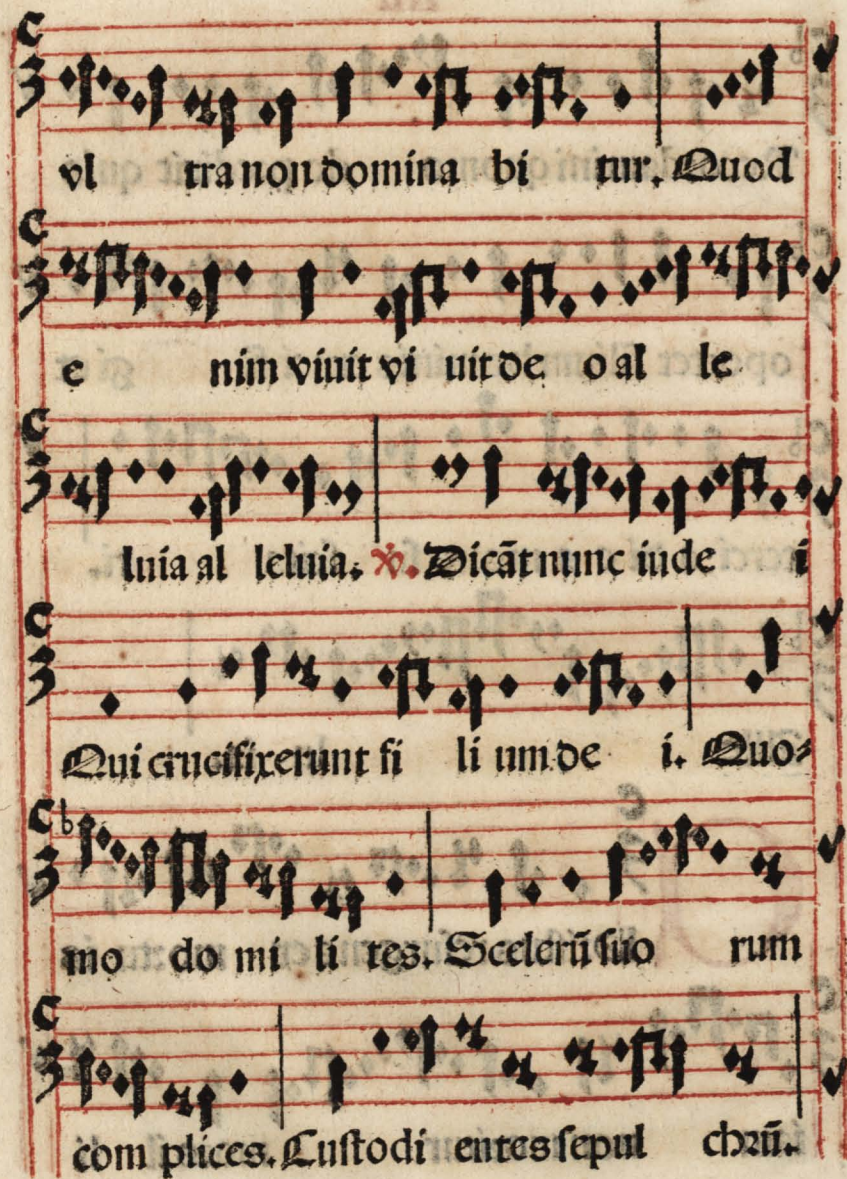 vl tra non domina bi tur. Quod
e nim viuit vi uit de o al le
luia al leluia. ℣. Dicāt nunc iude i
Qui crucifixerunt fi li um de i. Quo⸗
mo do mi li tes. Scelerū suo rum
com plices. Custodi entes sepul chrū.